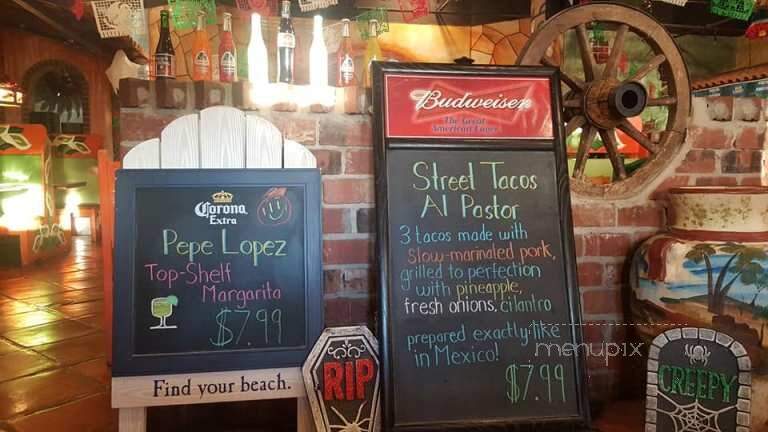 Corona
Extra
Pepe Lopez
Top-Shelf
Margarita
$7.99
Find your beach.
RIP
Budweiser
The Great
American Lager
Street Tacos
Al Pastor
3 tacos made with
slow-marinated pork,
grilled to perfection
with pineapple,
fresh onions, cilantro
prepared exactly like
in Mexico!
$7.99
menupix
CREEPY